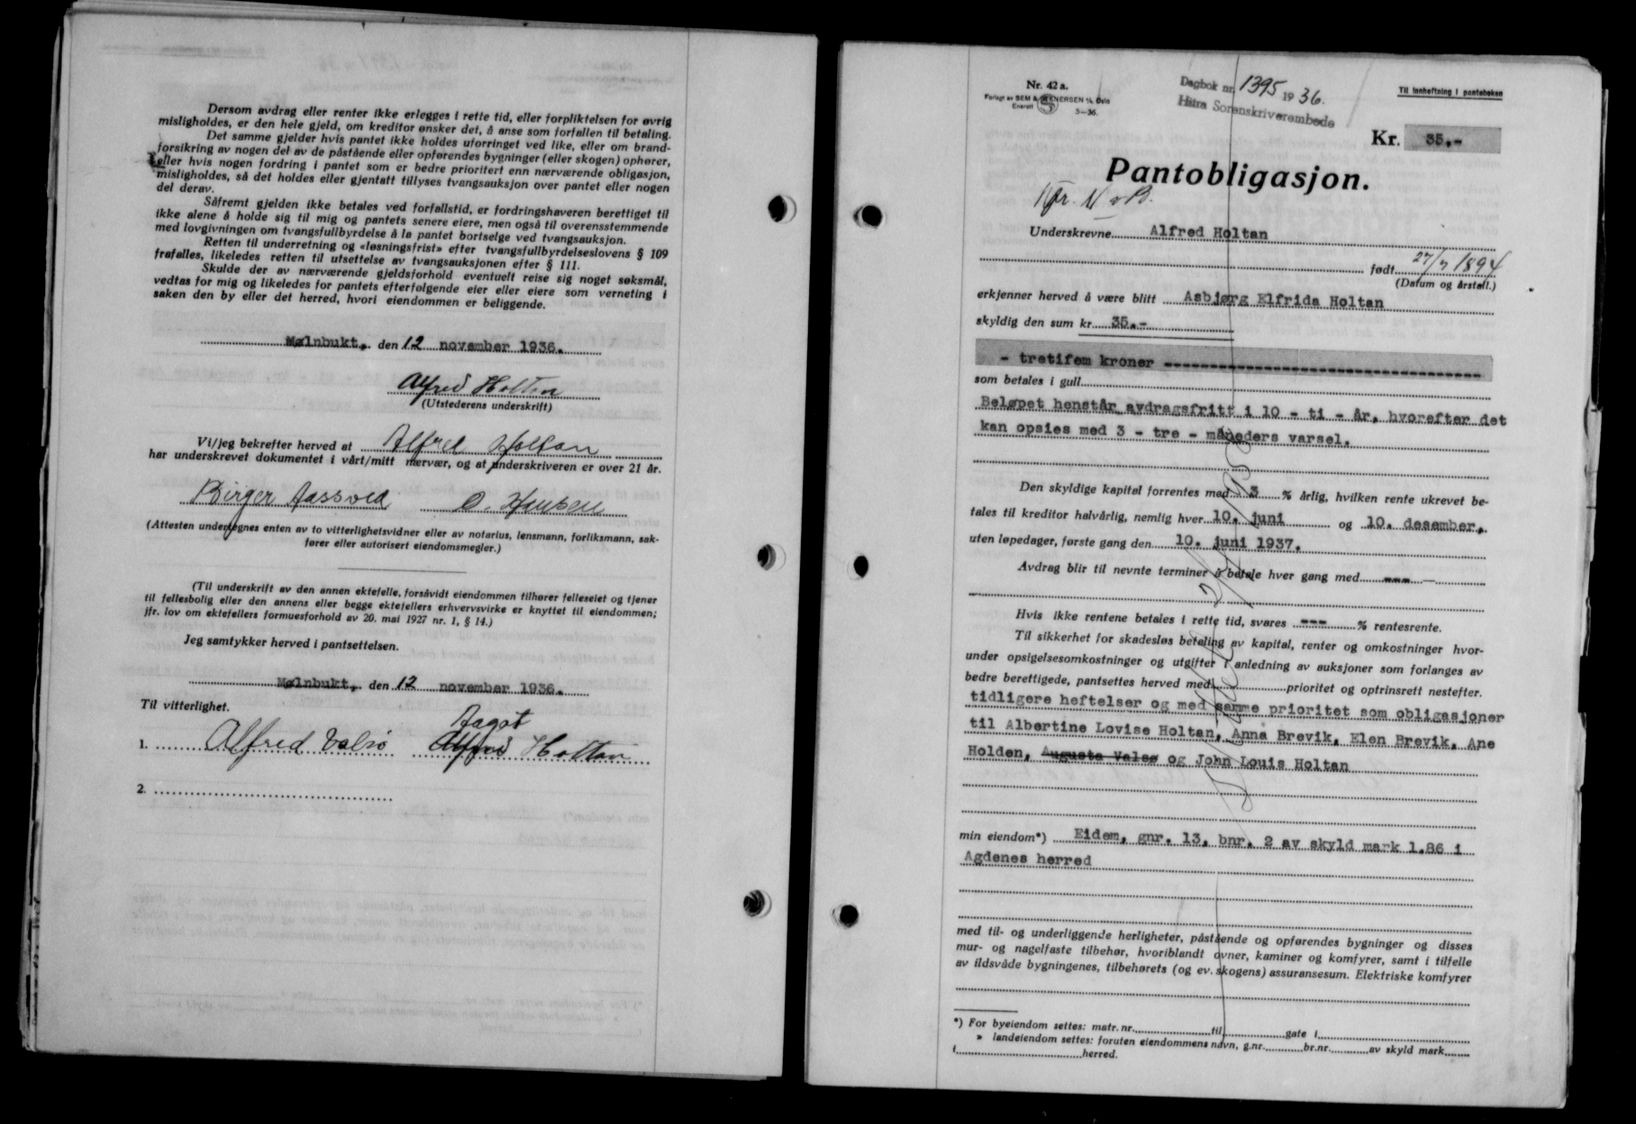 Dersom avdrag eller renter ikke erlegges i rette tid, eller forpliktelsen for øvrig
misligholdes, er den hele gjeld, om kreditor ønsker det, å anse som forfallen til betaling.
Det samme gjelder hvis pantet ikke holdes uforringet ved like, eller om brand-
forsikring av nogen del av de påstående eller opførendes bygninger (eller skogen) ophører,
eller hvis nogen fordring i pantet som er bedre prioritert enn nærværende obligasjon,
misligholdes, så det holdes eller gjentatt tillyses tvangsauksjon over pantet eller nogen
del derav.
Såfremt gjelden ikke betales ved forfallstid, er fordringshaveren berettiget til
ikke alene å holde sig til mig og pantets senere eiere, men også til overensstemmende
med lovgivningen om tvangsfullbyrdelse å la pantet bortselge ved tvangsauksjon.
Retten til underretning og «løsningsfrist» efter tvangsfullbyrdelseslovens § 109
frafalles, likeledes retten til utsettelse av tvangsauksjonen efter § 111.
Skulde der av nærværende gjeldsforhold eventuelt reise sig noget søksmål,
vedtas for mig og likeledes for pantets efterfølgende eier eller eiere som verneting i
saken den by eller det herred, hvori eiendommen er beliggende.
Mølnbukt, den 12 november 1936.
Alfred Holtan
(Utstederens underskrift)
Vi/jeg bekrefter herved at Alfred Holtan
har underskrevet dokumentet i vårt/mitt nærvær, og at underskriveren er over 21 år.
Birger Aassved O. Hansen
(Attesten undertegnes enten av to vitterlighetsvidner eller av notarius, lensmann, forliksmann, sak-
fører eller autorisert eiendomsmegler.)
(Til underskrift av den annen ektefelle, forsåvidt eiendommen tilhører felleseiet og tjener
til fellesbolig eller den annens eller begge ektefellers erhvervsvirke er knyttet til eiendommen;
jfr. lov om ektefellers formuesforhold av 20. mai 1927 nr. 1, § 14.)
Jeg samtykker herved i pantsettelsen.
Mølnbukt, den 12 november 1936.
Til vitterlighet.
Aagot
1. Alfred Valsø Alfred Holtan
2.
Nr. 42 a.
Forlagt av SEM & STENERSEN A/S, Oslo
Enerett
5—36.
Dagbok nr. 1395 1936.
Hitra Sorenskriverembede
Til innheftning i panteboken
Kr. 35,-
Pantobligasjon.
Underskrevne Alfred Holtan
født 27/7 1894
(Datum og årstall.)
erkjenner herved å være blitt Asbjørg Elfrida Holtan
skyldig den sum kr. 35.-
- trettifem kroner -
som betales i gull
Beløpet henstår avdragsfritt i 10 - ti - år, hvorefter det
kan opsies med 3 - tre - måneders varsel.
Den skyldige kapital forrentes med 3 % årlig, hvilken rente ukrevet be-
tales til kreditor halvårlig, nemlig hver 10. juni og 10. desember,
uten løpedager, første gang den 10. juni 1937.
Avdrag blir til nevnte terminer å betale hver gang med --- —
Hvis ikke rentene betales i rette tid, svares --- % rentesrente.
Til sikkerhet for skadesløs betaling av kapital, renter og omkostninger hvor-
under opsigelsesomkostninger og utgifter i anledning av auksjoner som forlanges av
bedre berettigede, pantsettes herved med prioritet og optrinsrett nestefter.
tidligere heftelser og med samme prioritet som obligasjoner
til Albertine Lovise Holtan, Anna Brevik, Elen Brevik, Ane
Holden, Augusta Valsø og John Louis Holtan
min eiendom*) Eidem, gnr. 13, bnr. 2 av skyld mark 1.86 i
Agdenes herred
med til- og underliggende herligheter, påstående og opførendes bygninger og disses
mur- og nagelfaste tilbehør, hvoriblandt ovner, kaminer og komfyrer, samt i tilfelle
av ildsvåde bygningenes, tilbehørets (og ev. skogens) assuransesum. Elektriske komfyrer
*) For byeiendom settes: matr. nr. til gate i
» landeiendom settes: foruten eiendommens navn, g.nr. br.nr. av skyld mark
i herred.